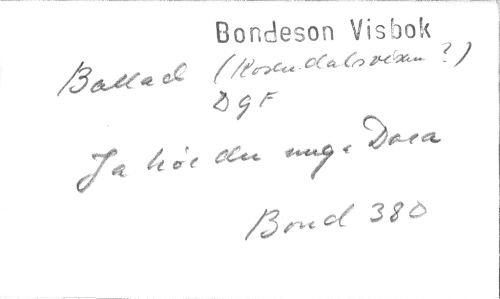 Bondeson Visbok
Ballad (Rosendalsvisan?)
DGF
Ja hör du unga Dora
Bond 380